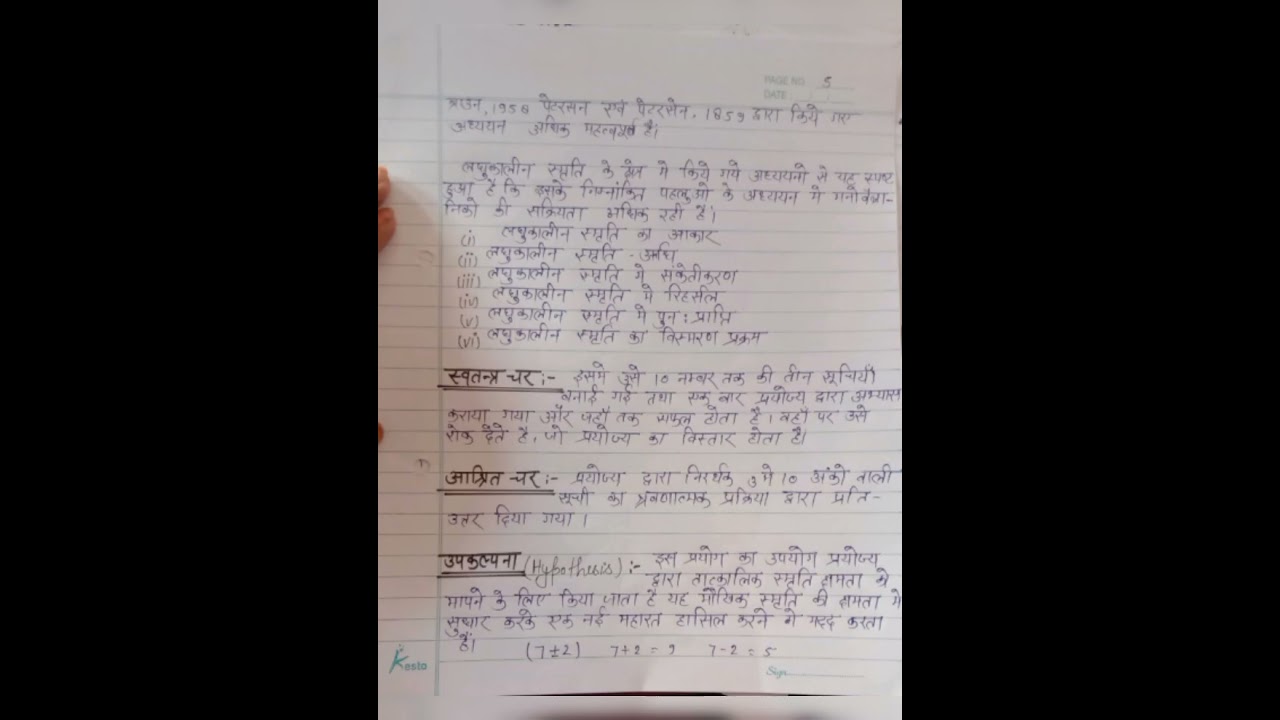 PAGE NO. 5
DATE
ब्राउन, 1958 पेटरसन एवं पेटरसेन, 1859 द्वारा किये गए
अध्ययन अधिक महत्वपूर्ण है।
लघुकालीन स्मृति के क्षेत्र मे किये गये अध्ययनो से यह स्पष्ट
हुआ है कि इसके निम्नांकित पहलुओ के अध्ययन मे मनोवैज्ञा-
निको की सक्रियता अधिक रही है।
(i) लघुकालीन स्मृति का आकार
(ii) लघुकालीन स्मृति - अवधि
(iii) लघुकालीन स्मृति मे संकेतीकरण
(iv) लघुकालीन स्मृति मे रिहर्सल
(v) लघुकालीन स्मृति मे पुन: प्राप्ति
(vi) लघुकालीन स्मृति का विस्मरण प्रक्रम
स्वतन्त्र चर :- इसमे उसे 10 नम्बर तक की तीन सूचियाँ
बनाई गई तथा एक बार प्रयोज्य द्वारा अभ्यास
कराया गया और जहाँ तक सफल होता है। वहाँ पर उसे
रोक देते है, जो प्रयोज्य का विस्तार होता है।
आश्रित चर :- प्रयोज्य द्वारा निरर्थक 3 मे 10 अंको वाली
सूची का श्रवणात्मक प्रक्रिया द्वारा प्रति-
उत्तर दिया गया।
उपकल्पना (Hypothesis) :- इस प्रयोग का उपयोग प्रयोज्य
द्वारा तात्कालिक स्मृति क्षमता को
मापने के लिए किया जाता है यह मौखिक स्मृति की क्षमता मे
सुधार करके एक नई महारत हासिल करने मे मदद करता
है। (7±2) 7+2=9 7-2=5
Kasta
Sign